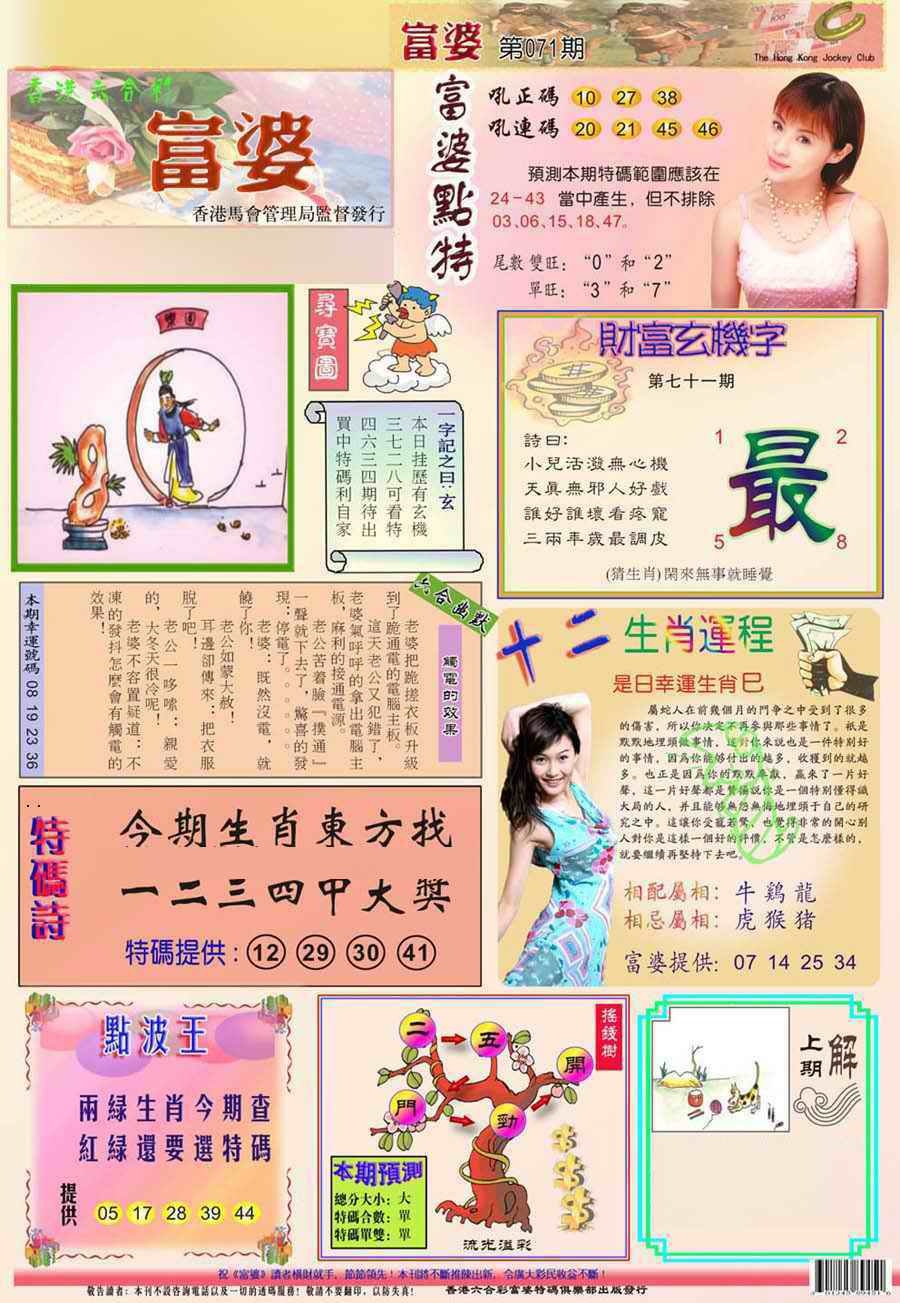 富婆 第071期
The Hong Kong Jockey Club
香港六合彩
富婆
香港馬會管理局監督發行
富婆點特
吼正碼 10 27 38
吼連碼 20 21 45 46
預測本期特碼範圍應該在
24-43 當中產生，但不排除
03、06、15、18、47。
尾數雙旺：“0”和“2”
單旺：“3”和“7”
樂園
尋寶圖
一字記之曰：玄
本日挂歷有玄機
三七二八可看特
四六三四期待出
買中特碼利自家
財富玄機字
第七十一期
詩曰：
小兒活潑無心機
天真無邪人好戲
誰好誰壞看疼寵
三兩年歲最調皮
1 2
最
5 8
(猜生肖)閑來無事就睡覺
六合幽默
觸電的效果
老婆把跪搓衣板升級
到了跪通電的電腦主板。
這天老公又犯錯了，
老婆氣呼呼的拿出電腦主
板，麻利的接通電源。
老公苦着臉『撲通』
一聲就下去了，驚喜的發
現：停電了。。。。。。
老婆：既然沒電，就
饒了你！
老公如蒙大赦！
耳邊卻傳來：把衣服
脫了吧！
老公一哆嗦：親愛
的，大冬天很冷呢！
老婆不容置疑道：不
凍的發抖怎麼會有觸電的
效果！
本期幸運號碼 08 19 23 36
十二生肖運程
是日幸運生肖巳
屬蛇人在前幾個月的鬥争之中受到了很多
的傷害，所以你决定不再參與那些事情了。衹是
默默地埋頭做事情，這對你来說也是一件特别好
的事情，因爲你能够付出的越多，收獲到的就越
多。也正是因爲你的默默奉獻，贏來了一片好
聲，這一片好聲都是贊揚説你是一個特别懂得識
大局的人，并且能够無怨無悔地埋頭于自己的研
究之中。這讓你受寵若驚，也覺得非常的開心别
人對你是這樣一個好的評價，不管是怎麽樣的，
就要繼續再堅持下去吧。
相配屬相：牛 鷄 龍
相忌屬相：虎 猴 猪
富婆提供：07 14 25 34
特碼詩
今期生肖東方找
一二三四中大獎
特碼提供：12 29 30 41
點波王
兩緑生肖今期查
紅緑還要選特碼
提供 05 17 28 39 44
搖錢樹
二 五
開
門
勁
本期預測
總分大小：大
特碼合數：單
特碼單雙：單
流光溢彩
上期解
祝《富婆》讀者横財就手，節節領先！本刊將不斷推陳出新，令廣大彩民收益不斷！
敬告讀者：本刊不設咨詢電話以及一切的透碼服務！敬請不要翻印，以防失真！ 香港六合彩富婆特碼俱樂部出版發行